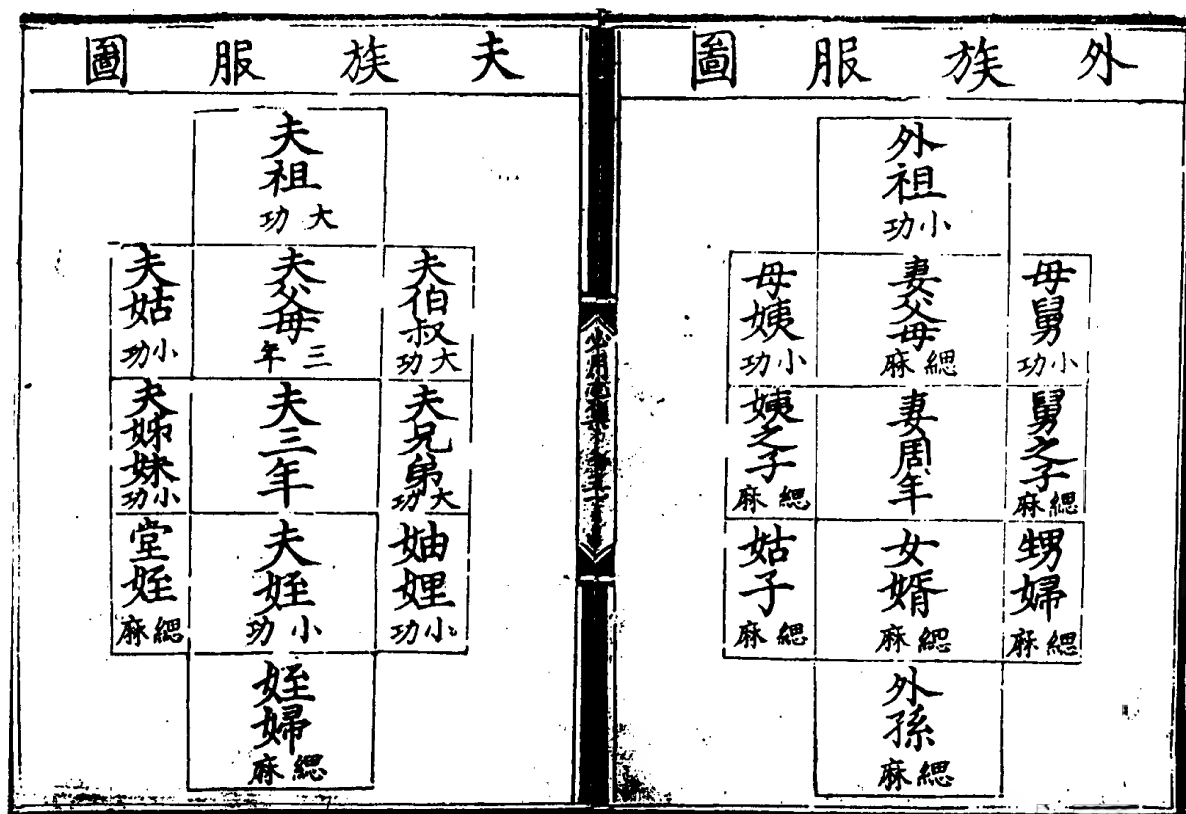 外族服圖
外祖
小功
母舅
小功
妻父母
緦麻
母姨
小功
舅之子
緦麻
妻周年
姨之子
緦麻
甥婦
緦麻
女婿
緦麻
姑子
緦麻
外孫
緦麻
夫族服圖
夫祖
大功
夫伯叔
大功
夫父母
三年
夫姑
小功
夫兄弟
大功
夫三年
夫姊妹
小功
妯娌
小功
夫姪
小功
堂姪
緦麻
姪婦
緦麻